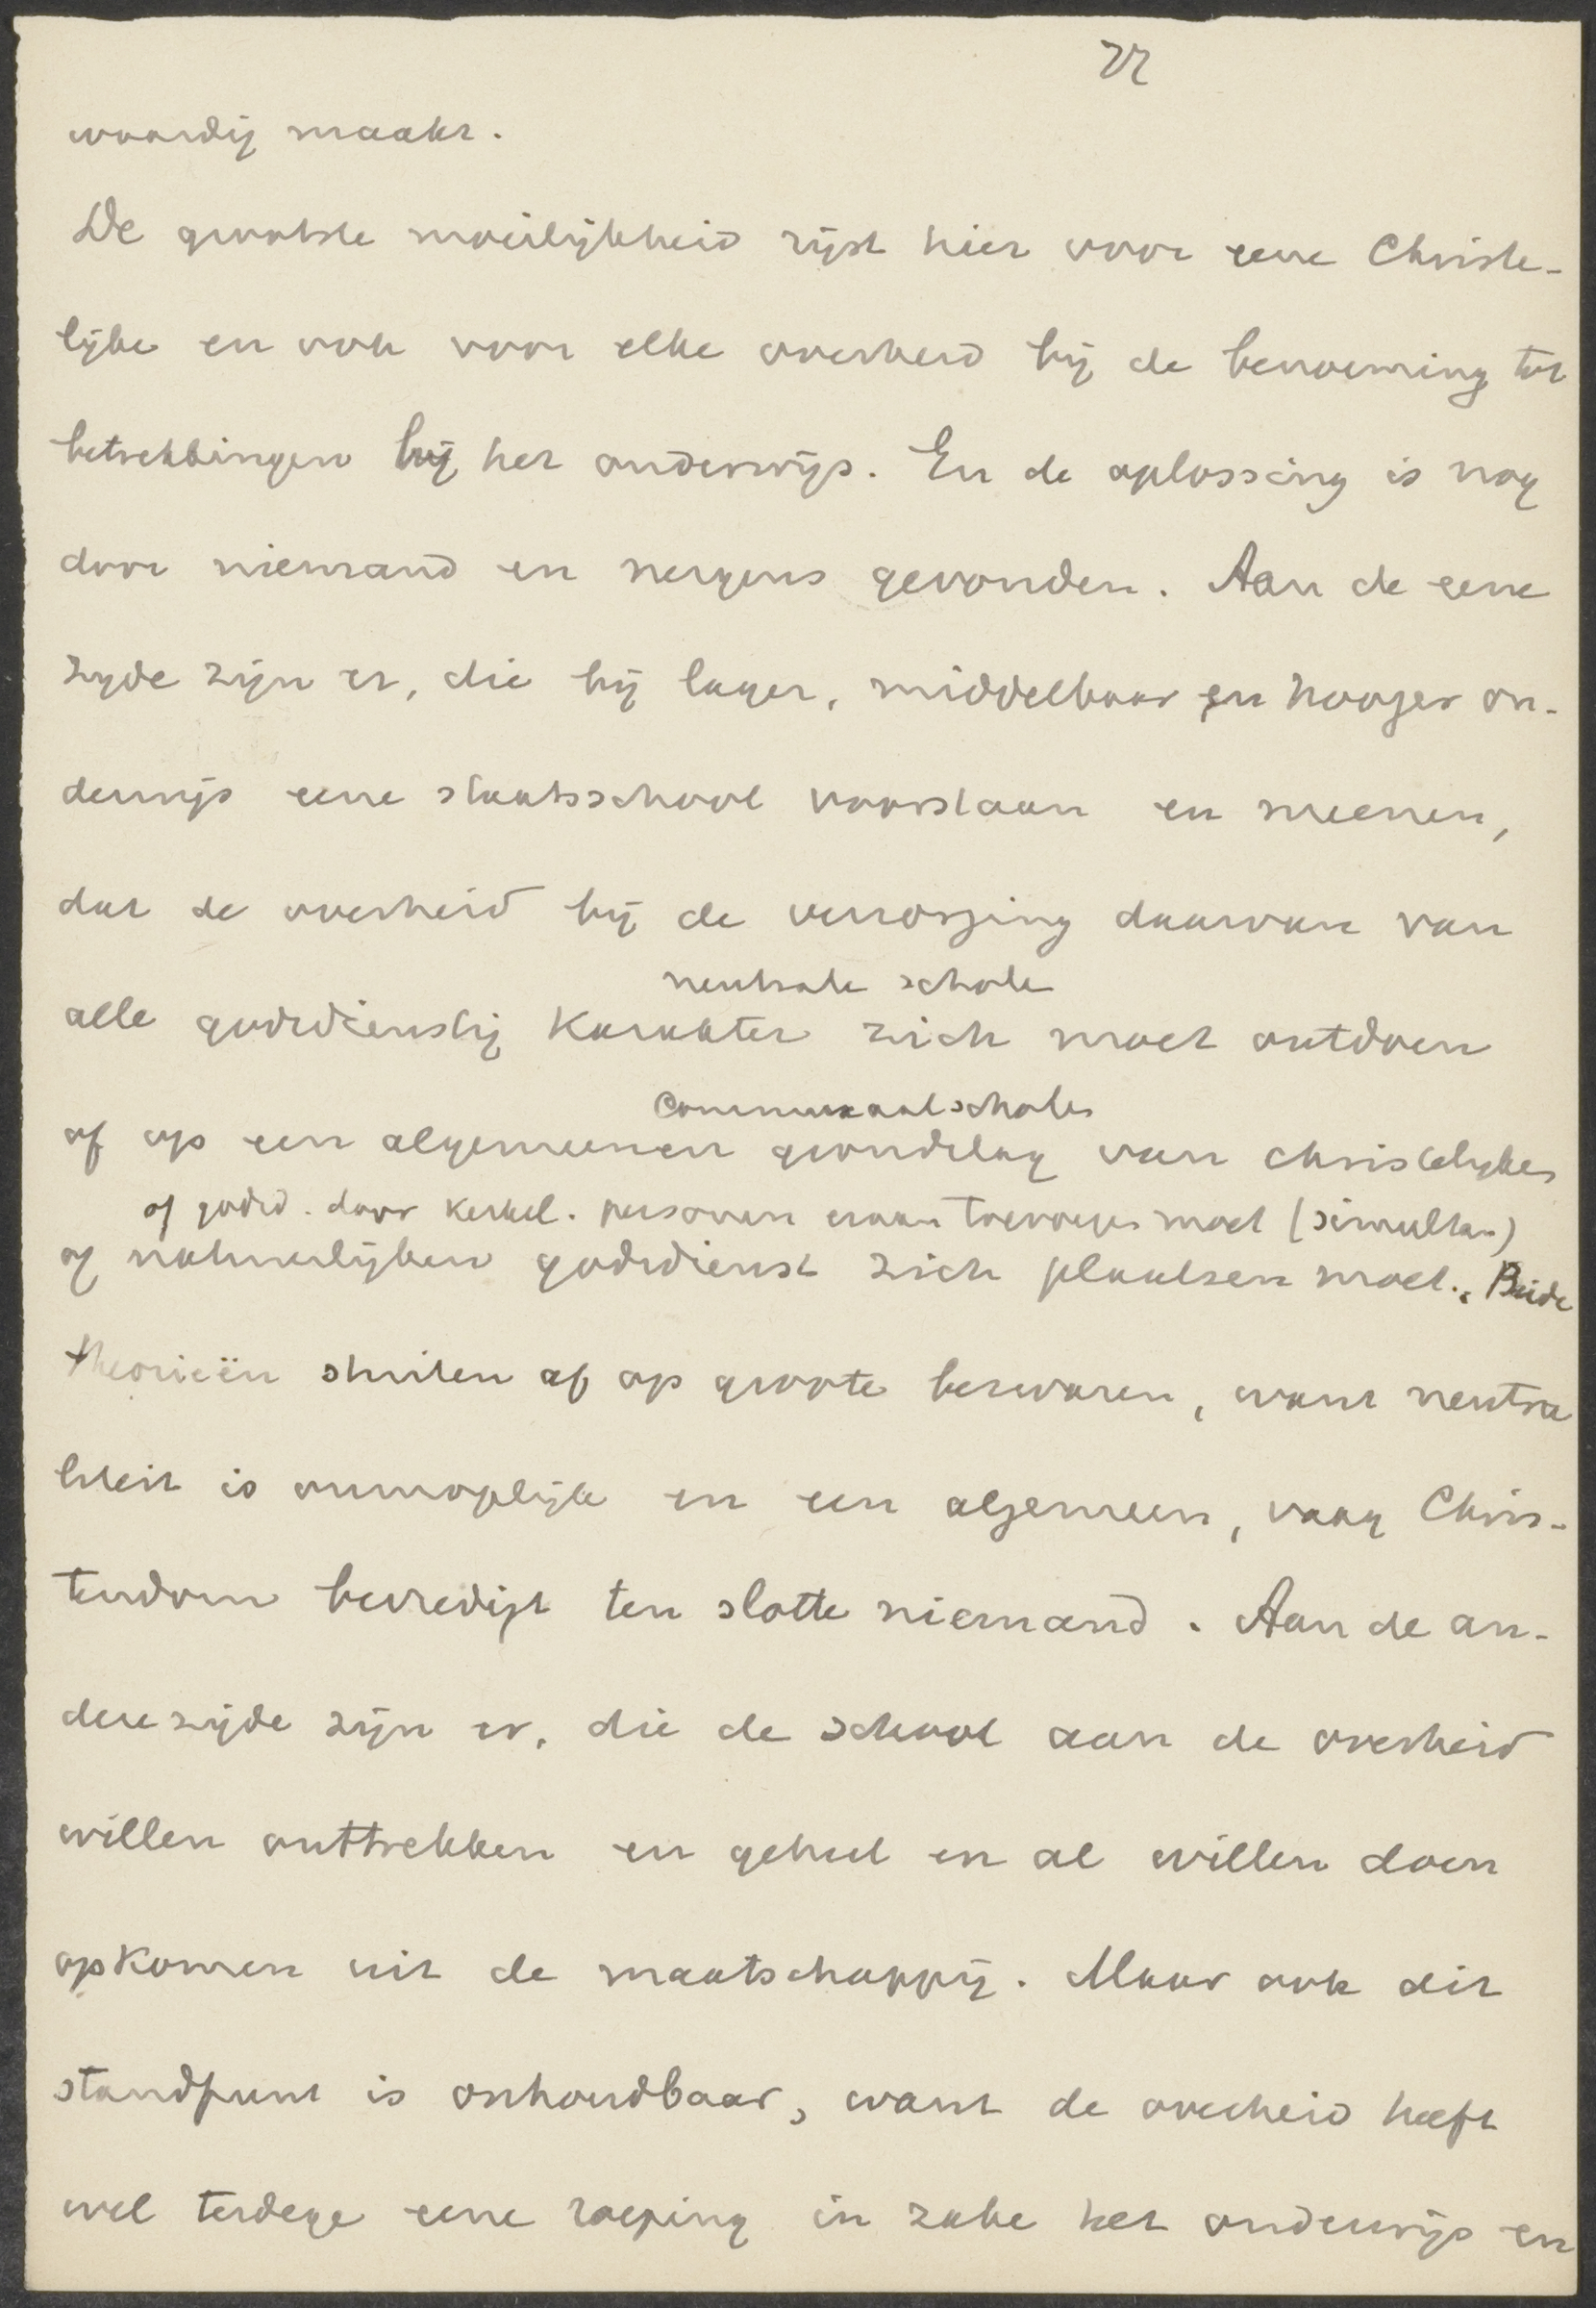 22
waardig maakt.
De grootste moeilijkheid rijst hier voor eene Christe-
lijke en ook voor elke overheid bij de benoeming tot
betrekkingen bij het onderwijs. En de oplossing is nog
door niemand en nergens gevonden. Aan de eene
zijde zijn er, die bij lager, middelbaar en hooger on-
derwijs eene staatsschool voorstaan en meenen,
dat de overheid bij de verzorging daarvan van
neutrale schole
alle godsdienstig karakter zich moet ontdoen
Communaalschole
of op een algemeenen grondslag van christelijken
of godsd. door kerkel. personen eraan toevoegen moet (simultan)
of natuurlijken godsdienst zich plaatsen moet. Beide
theorieën stuiten af op groote bezwaren, want neutra
liteit is onmogelijk en een algemeen, vaag Chris-
tendom bevredigt ten slotte niemand. Aan de an-
dere zijde zijn er, die de school aan de overheid
willen onttrekken en geheel en al willen doen
opkomen uit de maatschappij. Maar ook dit
standpunt is onhoudbaar, want de overheid heeft
wel terdege eene roeping in zake het onderwijs en